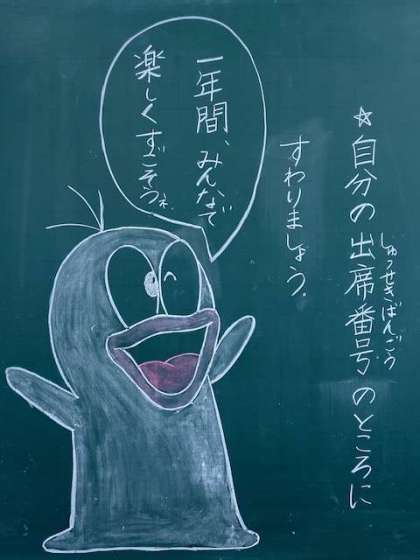 ☆自分の出席番号のところに
しゅっせきばんごう
すわりましょう。
一年間、みんなで
楽しくすごそうネ